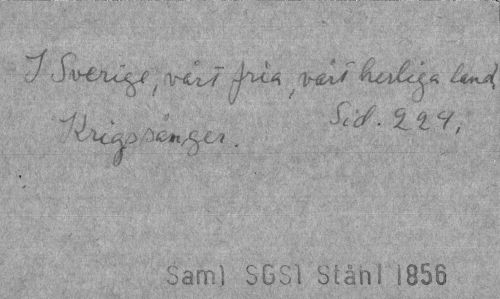 I Sverige, vårt fria, vårt herliga land
Sid. 224,
Krigssånger.
Saml SGS1 Ståhl 1856